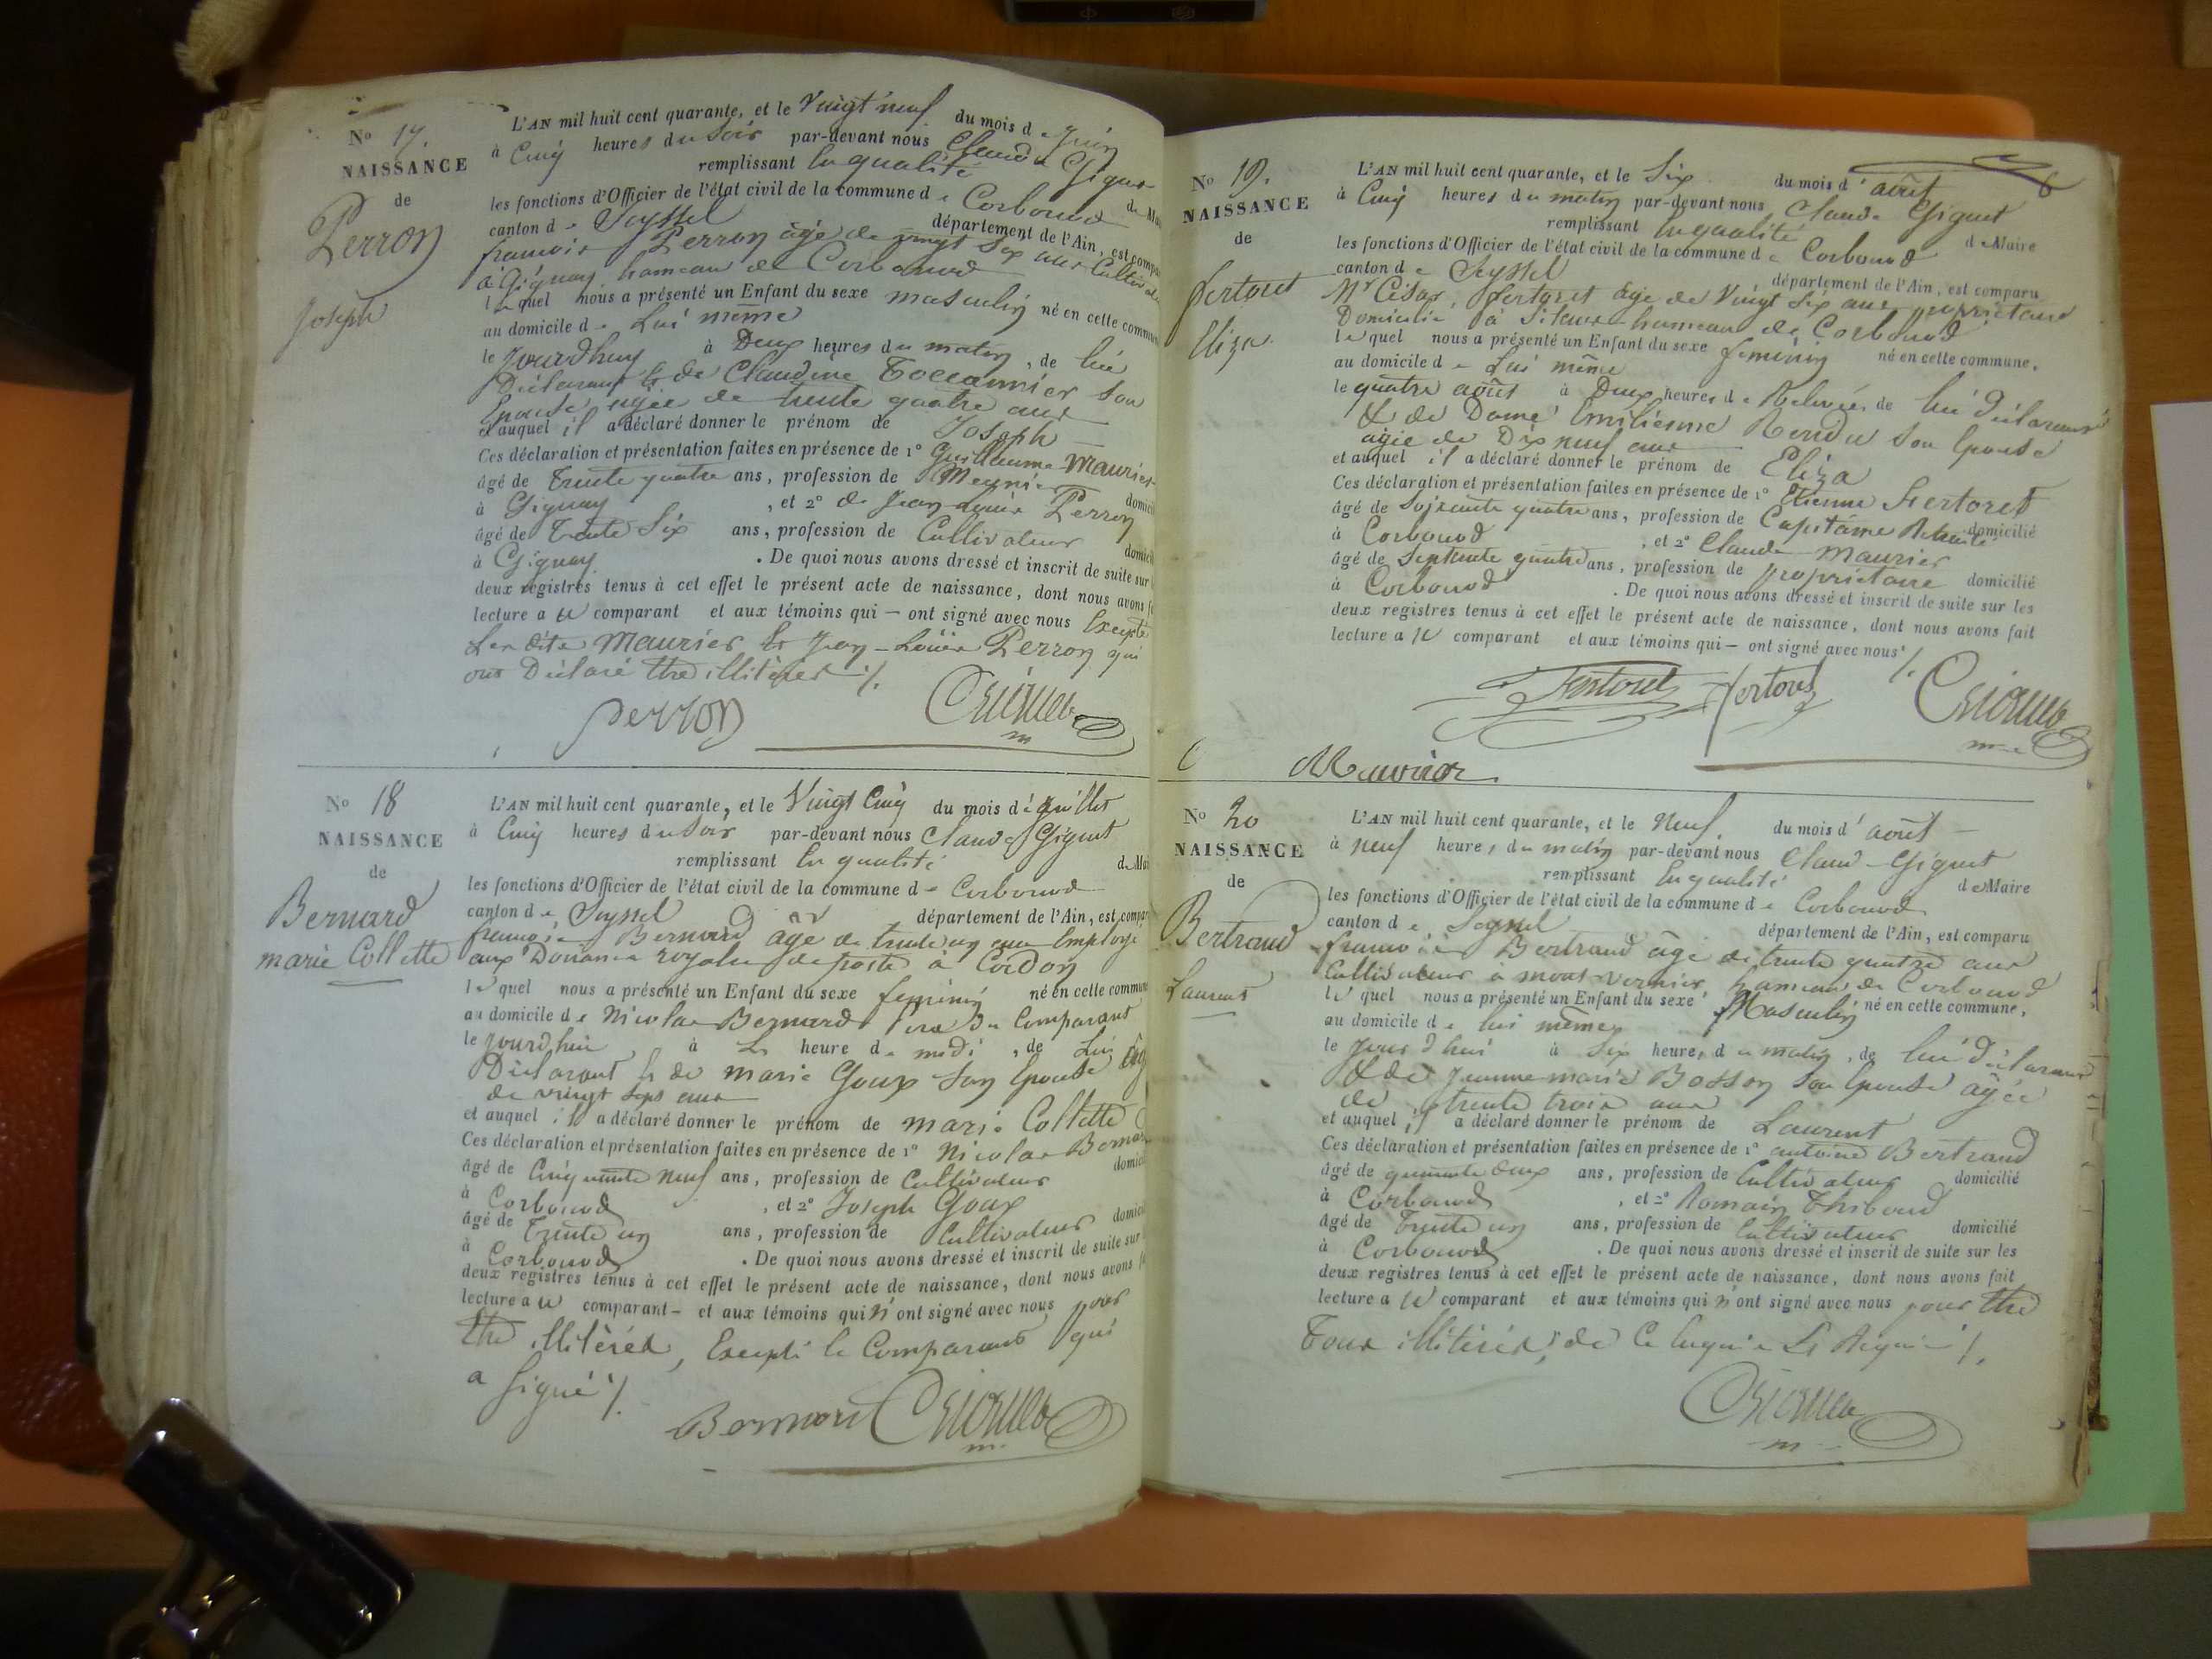 N° 17.
NAISSANCE
de
Perron
Joseph
L'AN mil huit cent quarante, et le Vingt neuf du mois de Juin
à Cinq heures du Soir par-devant nous Claude Giguet
remplissant En qualité de Mai
les fonctions d'Officier de l'état civil de la commune de Corbonod
canton de Seyssel département de l'Ain, est compa
françois Perron âgé de vingt Sep ans Cultiva
à Gignay hameau de Corbonod
lequel nous a présenté un Enfant du sexe masculin né en cette commune
au domicile de Lui même
le Jourdhuy à Deux heures du matin, de lui
Déclarant & de Claudine Toccannier son
Epouse agée de trente quatre ans
et auquel il a déclaré donner le prénom de Joseph
Ces déclaration et présentation faites en présence de 1° Guillaume Maurier
âgé de Trente quatre ans, profession de Meunier domici
à Gignay, et 2° de Jean Louis Perron
âgé de Trente Six ans, profession de Cultivateur domici
à Gignay. De quoi nous avons dressé et inscrit de suite sur
deux registres tenus à cet effet le présent acte de naissance, dont nous avons f
lecture au comparant et aux témoins qui – ont signé avec nous Excepté
Les dits Maurier & Jean-Louis Perron qui
ont Déclaré être illitérés ./.
perron Giguet
m
N° 18
NAISSANCE
de
Bernard
marie Collette
L'AN mil huit cent quarante, et le Vingt Cinq du mois de Juillet
à Cinq heures du Soir par-devant nous Claude Giguet
remplissant En qualité de Mai
les fonctions d'Officier de l'état civil de la commune de Corbonod
canton de Seyssel département de l'Ain, est compar
françois Bernard âgé de trente un ans Employé
aux Douanes royales de poste à Cordon
lequel nous a présenté un Enfant du sexe feminin né en cette commune
au domicile de Nicolas Bernard Père Du Comparant
le Jourdhui à heure de midi, de Lui
Déclarant & de marie Goux Son Epouse âgée
de vingt Sept ans
et auquel il a déclaré donner le prénom de marie Collette
Ces déclaration et présentation faites en présence de 1° Nicolas Bernar
âgé de Cinquante neuf ans, profession de Cultivateur domici
à Corbonod, et 2° Joseph Goux
âgé de Trente un ans, profession de Cultivateur domici
à Corbonod. De quoi nous avons dressé et inscrit de suite sur
deux registres tenus à cet effet le présent acte de naissance, dont nous avons f
lecture au comparant – et aux témoins qui n'ont signé avec nous pour
être illitérés, Excepté le Comparant qui
a Signé ./.
Bernard Giguet
m
N° 19.
NAISSANCE
de
fertoret
Eliza
L'AN mil huit cent quarante, et le Six du mois d'août
à Cinq heures du matin par-devant nous Claude Giguet
remplissant En qualité de Maire
les fonctions d'Officier de l'état civil de la commune de Corbonod
canton de Seyssel département de l'Ain, est comparu
Mr César fertoret âgé de Vingt Six ans propriétaire
Domicilié à Silans hameau de Corbonod
lequel nous a présenté un Enfant du sexe feminin né en cette commune.
au domicile de Lui même
le quatre août à Deux heures de Relevée, de lui Déclarant
& de Dame Emilienne Rendu Son Epouse
agée de Dix neuf ans
et auquel il a déclaré donner le prénom de Eliza
Ces déclaration et présentation faites en présence de 1° Etienne Fertoret
âgé de Soixante quatre ans, profession de Capitaine Retraité domicilié
à Corbonod, et 2° Claude Maurier
âgé de Septante quatre ans, profession de propriétaire domicilié
à Corbonod. De quoi nous avons dressé et inscrit de suite sur les
deux registres tenus à cet effet le présent acte de naissance, dont nous avons fait
lecture au comparant et aux témoins qui – ont signé avec nous ./.
Fertoret fertoret Giguet
m
Maurier
N° 20
NAISSANCE
de
Bertrand
Laurent
L'AN mil huit cent quarante, et le Neuf du mois d'août
à neuf heures du matin par-devant nous Claude Giguet
remplissant En qualité de Maire
les fonctions d'Officier de l'état civil de la commune de Corbonod
canton de Seyssel département de l'Ain, est comparu
françois Bertrand âgé de trente quatre ans
Cultivateur à mont vernier hameau de Corbonod
lequel nous a présenté un Enfant du sexe Masculin né en cette commune,
au domicile de lui même
le Jour d'hui à Six heures du matin, de lui Déclarant
& de Jeanne marie Bosson Son Epouse âgée
de trente trois ans
et auquel il a déclaré donner le prénom de Laurent
Ces déclaration et présentation faites en présence de 1° antoine Bertrand
âgé de quarante deux ans, profession de Cultivateur domicilié
à Corbonod, et 2° Romain Thiboud
âgé de Trente un ans, profession de Cultivateur domicilié
à Corbonod. De quoi nous avons dressé et inscrit de suite sur les
deux registres tenus à cet effet le présent acte de naissance, dont nous avons fait
lecture au comparant et aux témoins qui n'ont signé avec nous pour être
Tous illitérés, de Ce Enquis & Requis ./.
Giguet
m